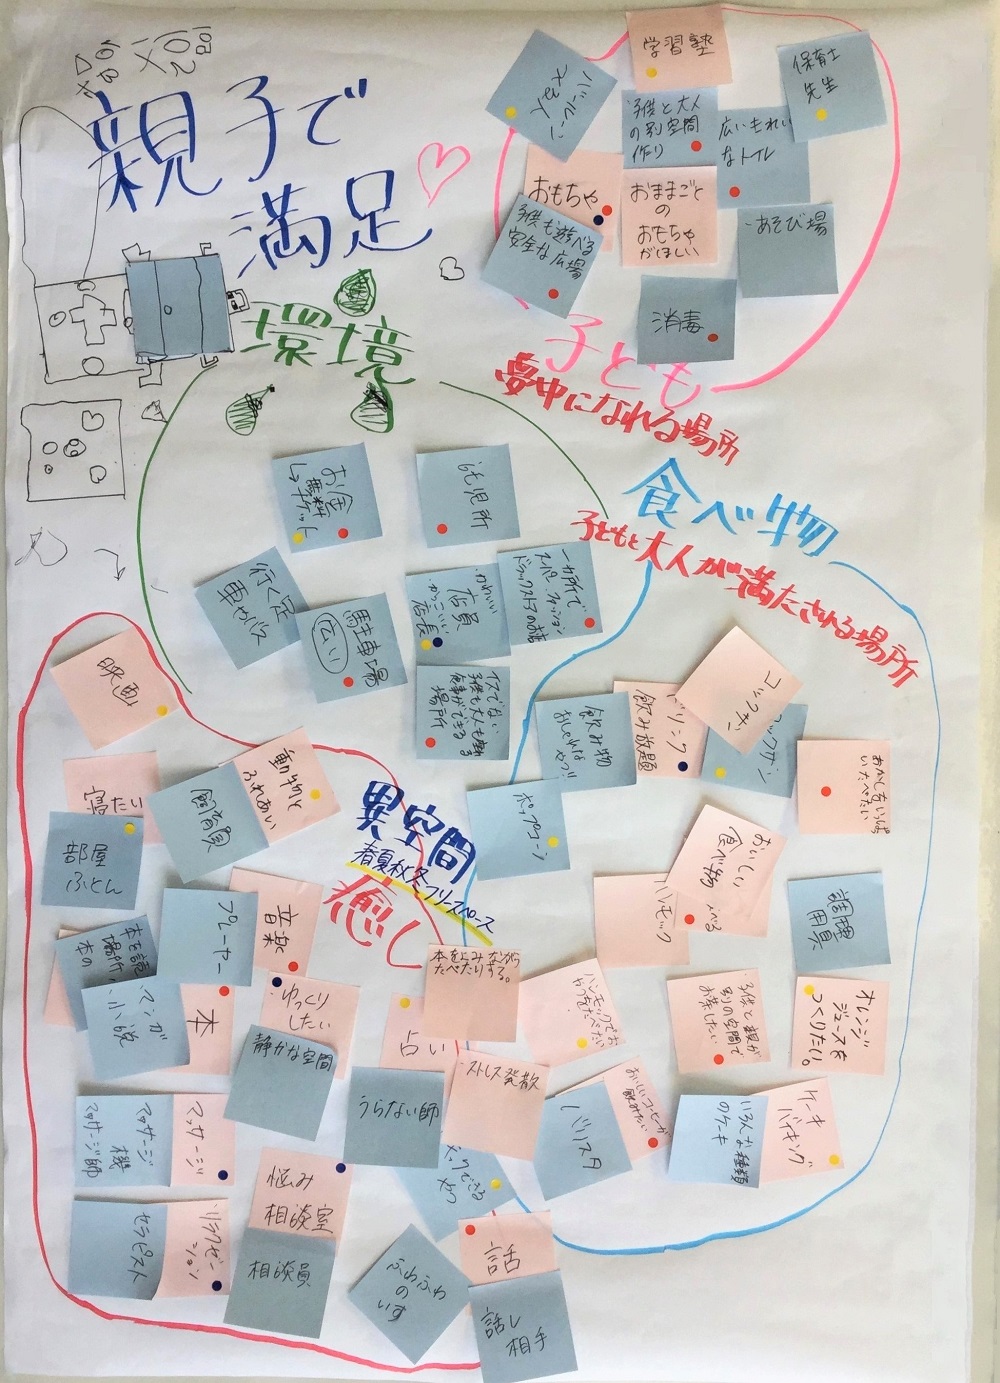 親子で
満足
学習塾
保育士
先生
子供と大人
の別空間
作り
広いきれい
なトイレ
おもちゃ
おままごと
の
おもちゃ
がほしい
子供も遊べる
安全な広場
・あそび場
消毒
子ども
夢中になれる場所
環境
お金
無料
チケット
託児所
行く足
車やバス
駐車場
広い
・かわいい
店員
・かっこいい
店長
一カ所で
スーパー・ファッション
ドラックストアのお店
イスでない
子供も大人も座れ
食事ができる
場所
食べ物
子どもと大人が満たされる場所
飲み物
おしゃれな
やつ!!
ドリンク
飲み放題
コックサン
おかしをいっぱい
たべたい
ポップコーン
おいしい
食べ物
ハンモック
調理
用具
ハンモックでお
かつをたべたい
子供と親が
別の空間で
お茶したい
オレンジ
ジュースを
つくりたい。
おいしいコーヒーが
飲みたい
バリスタ
いろんな種類
のケーキ
ケーキ
バイキング
異空間
春夏秋冬フリースペース
癒し
映画
寝たい
部屋
ふとん
飼育員
動物と
ふれあい
音楽
プレーヤー
本を読
場所
本の
マンガ
小説
本
ゆっくり
したい
静かな空間
占い
うらない師
本をよみながら
たべたりする。
・ストレス発散
マッサージ
マッサージ
機
マッサージ師
リラクゼー
ション
セラピスト
悩み
相談室
相談員
できる
やつ
ふわふわ
の
いす
話
話し
相手